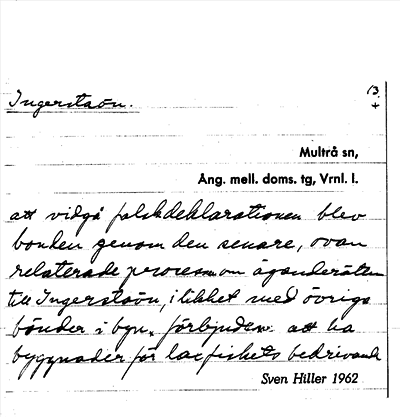 Ingerstaön.
13
+
Multrå sn,
Ång. mell. doms. tg, Vrnl. l.
att vidgå falskdeklarationen blev
bonden genom den senare, ovan
relaterade processen om äganderätten
till Ingerstaön, i likhet med övriga
bönder i byn, förbjuden att ha
byggnader för laxfiskets bedrivande
Sven Hiller 1962